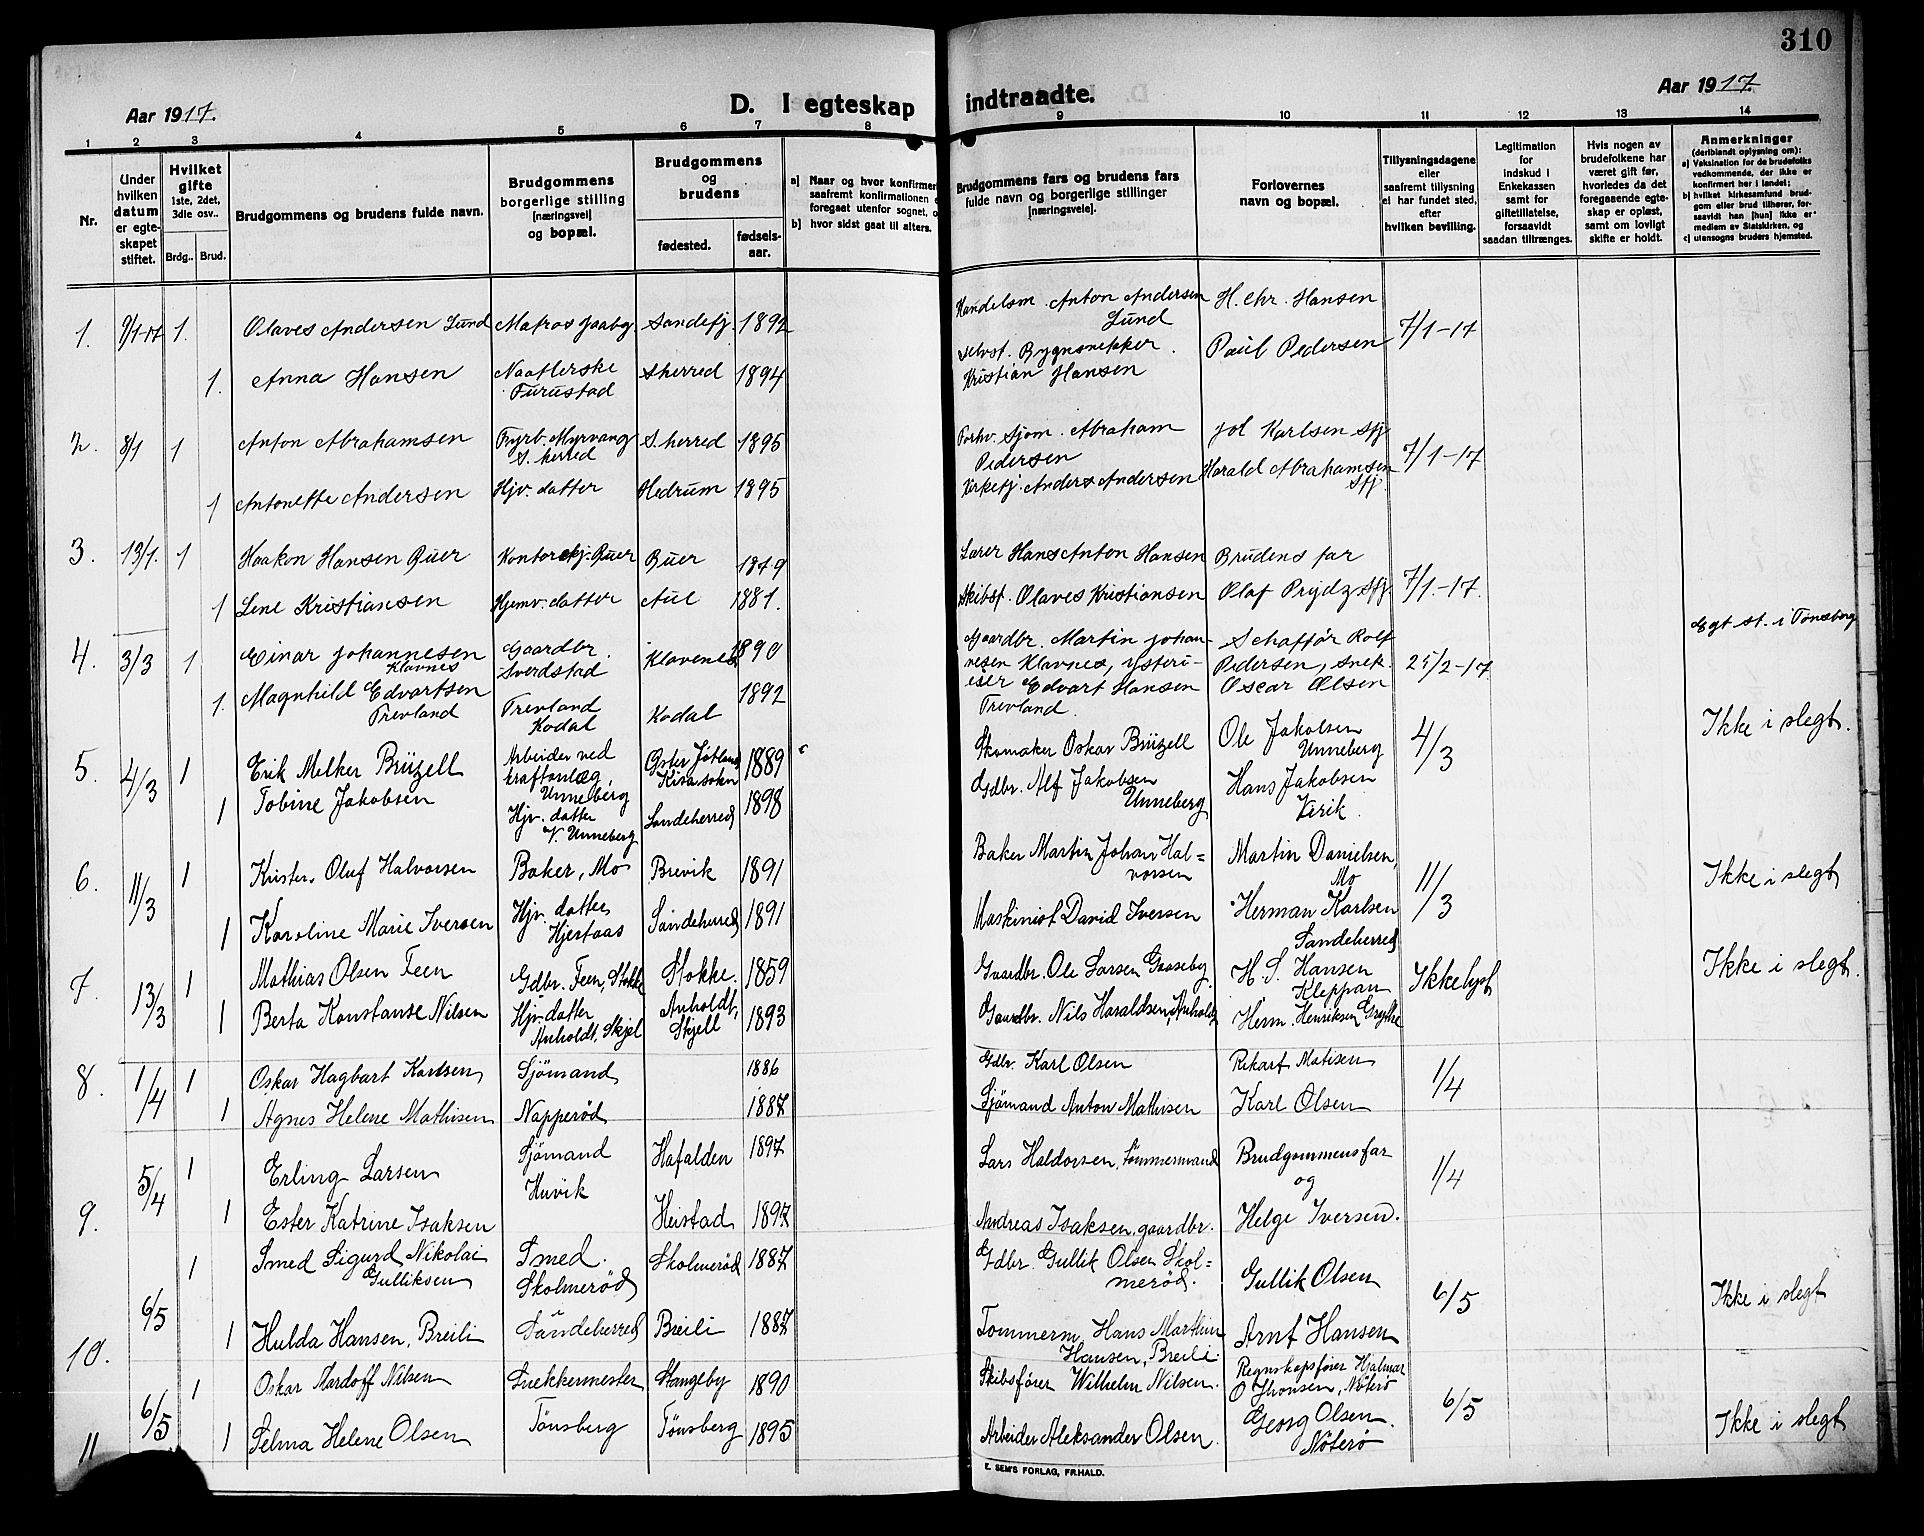 310
Aar 1917.
D. I egteskap indtraadte.
Aar 1917.
1 2 3 4 5 6 7 8 9 10 11 12 13 14
Nr.
Under hvilken datum er egteskapet stiftet.
Hvilket gifte 1ste, 2det, 3die osv..
Brdg.. Brud.
Brudgommens og brudens fulde navn.
Brudgommens borgerlige stilling [næringsvei] og bopæl.
Brudgommens og brudens
fødested.
fødsels-aar.
a] Naar og hvor konfirmer
saafremt konfirmationen e
foregaat utenfor sognet, o
b] hvor sidst gaat til alters.
Brudgommens fars og brudens fars
fulde navn og borgerlige stillinger
[næringsvei].
Forlovernes
navn og bopæl.
Tillysningsdagene
eller
saafremt tillysning
ei har fundet sted,
efter
hvilken bevilling.
Legitimation
for
indskud i
Enkekassen
samt for
giftetillatelse,
forsaavidt
saadan tiltrænges.
Hvis nogen av
brudefolkene har
været gift før,
hvorledes da det
foregaaende egte-
skap er opløst,
samt om lovligt
skifte er holdt.
Anmerkninger
(deriblandt oplysning om):
a) Vaksination for de brudefolks
vedkommende, der ikke er
konfirmert her i landet;
b) hvilket kirkesamfund brud-
gom eller brud tilhører, for-
saavidt han [hun] ikke er
medlem av Statskirken, og
c] utensogns bruders hjemsted.
1. 9/1-17 1. Olaves Andersen Lund Matros Jaabg. Sandefj. 1892 Handelsm. Anton Andersen Lund H. Chr. Hansen 7/1-17
1. Anna Hansen Furustad Sherred 1894 selvst. Bygnsnekker. Kristian Hansen Paul Pedersen
2. 8/1 1 Anton Abrahamsen Fyrb. Myrvang S. herred S. herred 1895 Forhv. Sjøm. Abraham Pedersen Joh Karlsen Sfj. 7/1-17
1 Antonette Andersen Hjv. datter Hedrum 1895 Kirketj. Anders Andersen Harald Abrahamsen Sfj.
3. 13/1. 1 Haakon Hansen Buer Kontorskj. Buer Buer 1879 Lærer Hans Anton Hansen Brudens far 7/1.-17.
1 Lene Kristiansen Hjemv. datter Aul 1881. Skibsf. Olaves Kristiansen Olaf Prydz Sfj.
4. 3/3 1 Einar Johannesen Klavnes Gaardbr. Sverdstad Klavenes 1890 Gaardbr. Martin Johannesen Klavnes, Schaffør Rolf Pedersen, snek. 25/2-17 Egt st. i Tønsberg
1. Magnhild Edvartsen Trevland Trevland Kodal Kodal 1892 Edvart Hansen Trevland. Oscar Olsen
5. 4/3 1 Erik Melker Brüzell Arbeider ved kraftanlæg, Unneberg Øster Jøtland Kisa sokn 1889 c Skomaker Oskar Brüzell Ole Jakobsen Unneberg 4/3 Ikke i slegt.
1 Tobine Jakobsen Hjv. datter V. Unneberg Sandeherred 1898 Gdbr. Alf Jakobsen Unneberg Hans Jakobsen Virik.
6. 11/3 1 Krister. Oluf Halvorsen Baker, Mo Brevik 1891 Baker Martin Johan Hal=vorsen Martin Danielsen, Mo 11/3 Ikke i slegt
1 Karoline Marie Iversen Hjv. datter Hjertaas Sandeherred 1891 Maskinist David Iversen Herman Karlsen Sandeherred
7. 13/3 1 Mathias Olsen Feen Gdbr. Feen, Stokke Stokke. 1859 Gaardbr. Ole Larsen Gaaseby. H. S. Hansen Kleppan Ikke lyst Ikke i slegt.
1 Berta Konstanse Nilsen Hjv. datter Anholdt, Skjel Anholdt, Skjell 1893 Gaardbr. Nils Haraldsen, Anholdt Herm. Henriksen Grytte
8. 1/4 1 Oskar Hagbart Karlsen Sjömand 1886 Gdbr. Karl Olsen Rikart Matisen 1/4
1 Agnes Helene Mathisen Napperød 1887 Sjömand Anton Mathisen Karl Olsen
9. 5/4 1 Erling Larsen Sjömand Huvik Hafalden 1897 Lars Haldorsen, Tømmermand Brudgommens far og 1/4
1 Ester Katrine Isaksen Heistad 1897 Andreas Isaksen, gaardbr. Helge Iversen.
10. 6/5 1 Smed Sigurd Nikolai Gulliksen Smed. Skolmerød Skolmerød 1887 Gdbr. Gullik Olsen Skol=merød. Gullik Olsen 6/5 Ikke i slegt
1 Hulda Hansen, Breili Sandeherred Breili 1887 Tommerm. Hans Marthin Hansen, Breili. Arnt Hansen
11 6/5 1 Oskar Nardoff Nilsen Snekkermester Stangeby 1890 Skibsfører Wilhelm Nilsen. Regnskapsfører Hjalmar O Thorsen, Nøterø 6/5 Ikke i slegt
1 Selma Helene Olsen Tønsberg Tønsberg 1895 Arbeider Aleksander Olsen. Georg Olsen. Nøterø
E. SEM'S FORLAG, FR.HALD.